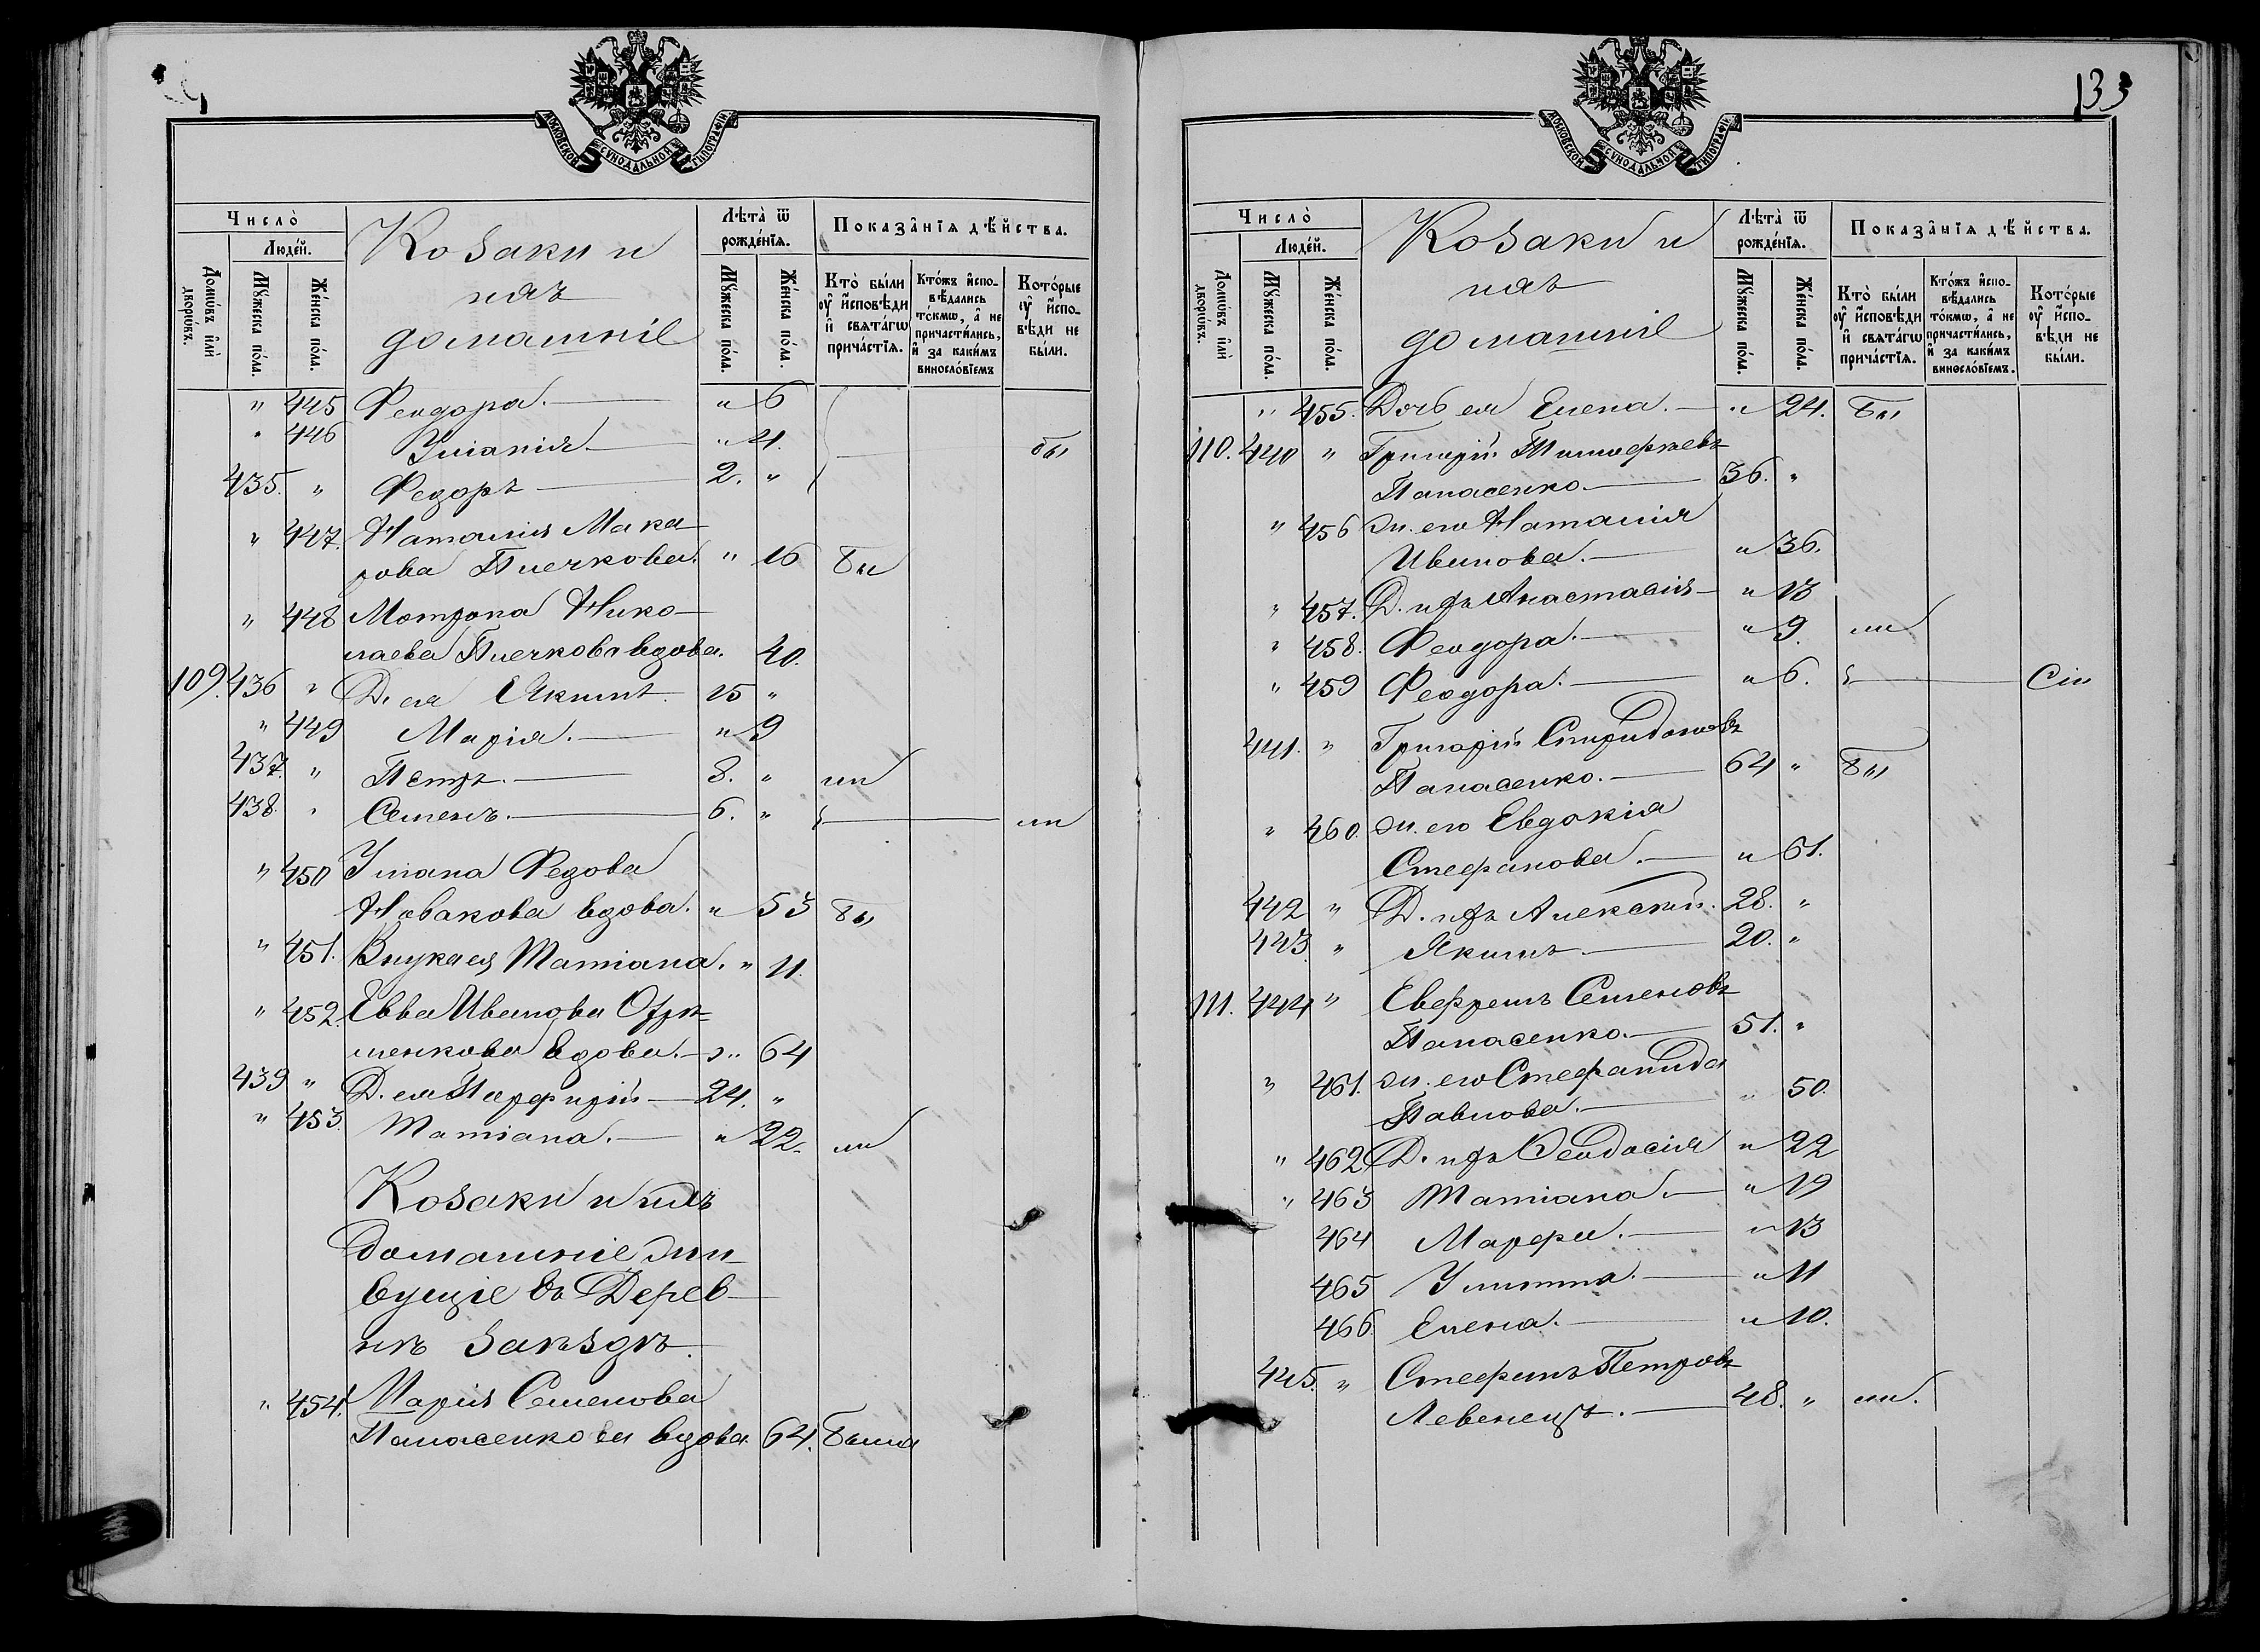 МОСКОВСКОЙ СУНОДАЛЬНОЙ ТИПОГРАФІИ
Число̀
Люде́й.
Домѡ́въ и҆лѝ дворѡ́въ.
Мꙋ́жеска по́ла.
Же́нска по́ла.
Козаки и
ихъ
домашніе
Лѣта̀ ѿ рожде́нїѧ.
Мꙋ́жеска по́ла.
Же́нска по́ла.
Показа̂нїѧ дѣ́йства.
Кто̀ бы́ли ᲂу҆ и҆сповѣди и҆ свѧта́гѡ прича́стїѧ.
Кто́жъ и҆сповѣдались то́кмѡ, а҆ не причасти́лись, и҆ за каки́мъ винословїемъ
Кото́рые ᲂу҆ и҆сповѣди не бы́ли.
" 445 Феодора. " 6
" 446 Уліанія " 4. бы
435. " Федоръ 2. "
" 447. Наталія Мака
рова Плечкова. " 16 Бы
" 448 Мотрона Нико-
лаева Плечкова вдова. 40.
109. 436 " Д. ея Якимъ. 15 "
" 449 Марія. " 9
437. " Петръ. 8. " ли
438. " Семенъ. 6. " ли
" 450 Уліана Федова
Новакова вдова. " 53 Бы
" 451. Внука ея Татіана. " 11.
" 452. Евва Иванова
вдова. " 64
439 " Д. ея Порфирій 24. "
" 453. Татіана. " 22. ли
Козаки и ихъ
Домашніе жи-
вущіе въ Дерев-
нѣ Заѣздѣ.
" 454. Марія Семенова
Панасенкова вдова. 64. Была
133
МОСКОВСКОЙ СУНОДАЛЬНОЙ ТИПОГРАФІИ
Число̀
Люде́й.
Домѡ́въ и҆лѝ дворѡ́въ.
Мꙋ́жеска по́ла.
Же́нска по́ла.
Козаки и
ихъ
домашніе
Лѣта̀ ѿ рожде́нїѧ.
Мꙋ́жеска по́ла.
Же́нска по́ла.
Показа̂нїѧ дѣ́йства.
Кто̀ бы́ли ᲂу҆ и҆сповѣди и҆ свѧта́гѡ прича́стїѧ.
Кто́жъ и҆сповѣдались то́кмѡ, а҆ не причасти́лись, и҆ за каки́мъ винословїемъ.
Кото́рые ᲂу҆ и҆сповѣди не бы́ли.
" 455. Дочь ея Елена. " 24. Бы
110. 440 " Григорій Тимофѣевъ
Панасенко 36. "
" 456 Ж. его Наталія
Иванова. " 36.
" 457. Д. ихъ Анастасія " 13
" 458. Феодора. " 9. ли
" 459 Феодора. " 6. Сіи
441. " Григорій Спиридоновъ
Панасенко. 64 " Бы
" 460. Ж. его Евдокія
Стефанова. " 61.
442 " Д. ихъ Алексѣй. 28. "
443 " Якимъ 20. "
111. 444 " Евфремъ Семеновъ
Панасенко. 51. "
" 461. Ж. его Стефанида
Павлова. " 50.
" 462 Д. ихъ Феодосія " 22
" 463 Татіана. " 19
464 Марфа. " 13
465 Улитта. " 11
466. Елена. " 10.
445. " Стефанъ Петровъ
Левенецъ. 48. " ли.